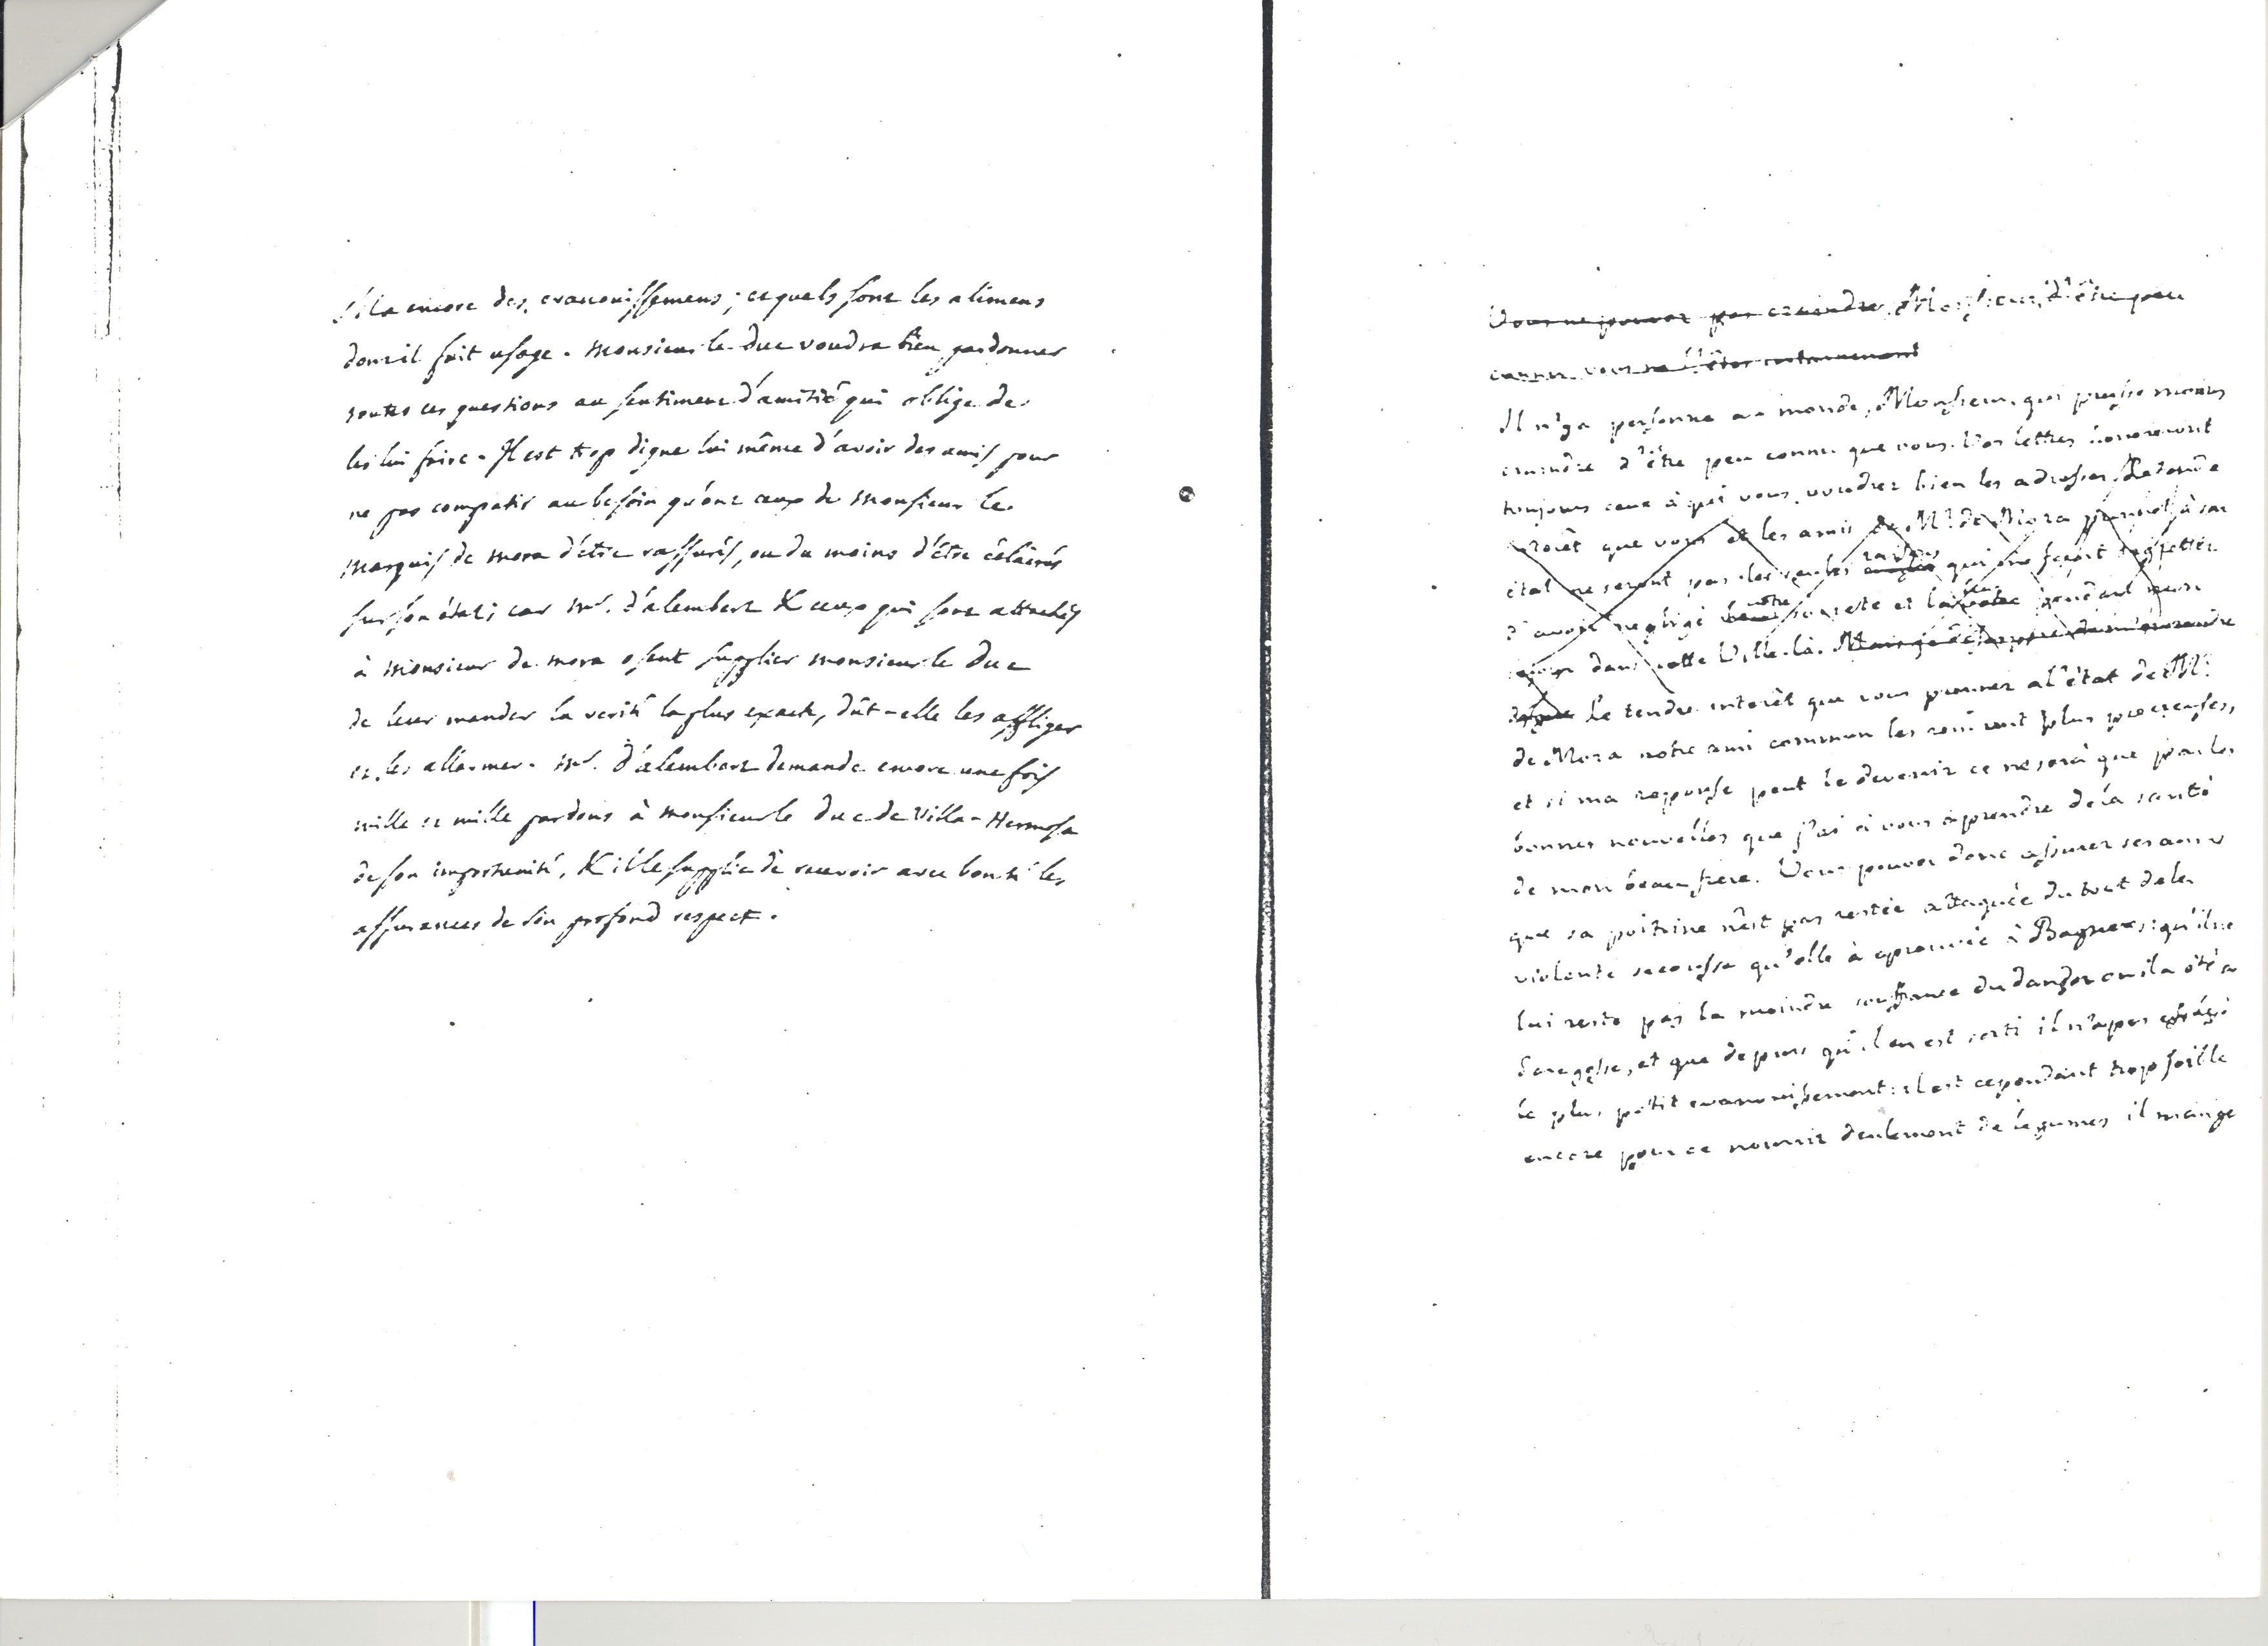 s'il a encore des evanouissemens; et quels sont les alimens
dont il fait usage. Monsieur le duc voudra bien pardonner
toutes ces questions au sentiment d'amitié qui oblige de
les lui faire. Il est trop digne lui même d'avoir des amis pour
ne pas compatir au besoin qu'ont ceux de Monsieur le
Marquis de Mora d'être rassurés, ou du moins d'être éclairés
sur son état; car Mr. d'alembert & ceux qui sont attachés
à Monsieur de Mora osent supplier monsieur le duc
de leur mander la verité la plus exacte, dût-elle les affliger
et les allarmer. Mr. d'alembert demande encore une fois
mille et mille pardons à Monsieur le duc de Villa-Hermosa
de son importunité, & il le supplie de recevoir avec bonté les
assurances de son profond respect.
Vous ne pouvez pas craindre, Monsieur, d'être peu
connu vous ne l'êtes certainement
Il n'y a personne au monde, Monsieur, qui puisse moins
craindre d'être peu connu que vous. Vos lettres honoreront
toujours ceux à qui vous voudrez bien les adresser. Le tendre
interêt que vous et les amis de Mr. de Mora prennet à son
état ne seront pas les seules raisons qui me feront regretter
d'avoir negligé votre societe et la leur pendant mon
sejour dans cette Ville-là.
Le tendre interêt que vous prenez a l'état de Mr.
de Mora notre ami commun les rendront plus precieuses,
et si ma reponse peut le devenir ce ne sera que par les
bonnes nouvelles que j'ai à vous aprendre de la santé
de mon beau frere. Vous pouvez donc assurer ses amis
que sa poitrine n'est pas restée attaquée du tout de la
violente secousse qu'elle à eprouvée à Bagneres: qu'il ne
lui reste pas la moindre souffrance du danger ou il a été a
Saragosse, et que depuis qu'il en est sorti il n'a pas essuyé
le plus petit evanouissement: il est cependant trop foible
encore pour ce nourrir seulement de légumes il mange